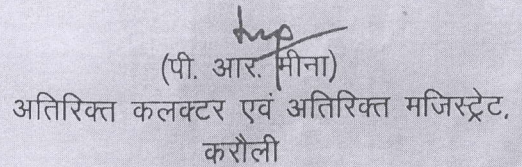 (पी. आर. मीना)
अतिरिक्त कलक्टर एवं अतिरिक्त मजिस्ट्रेट,
करौली